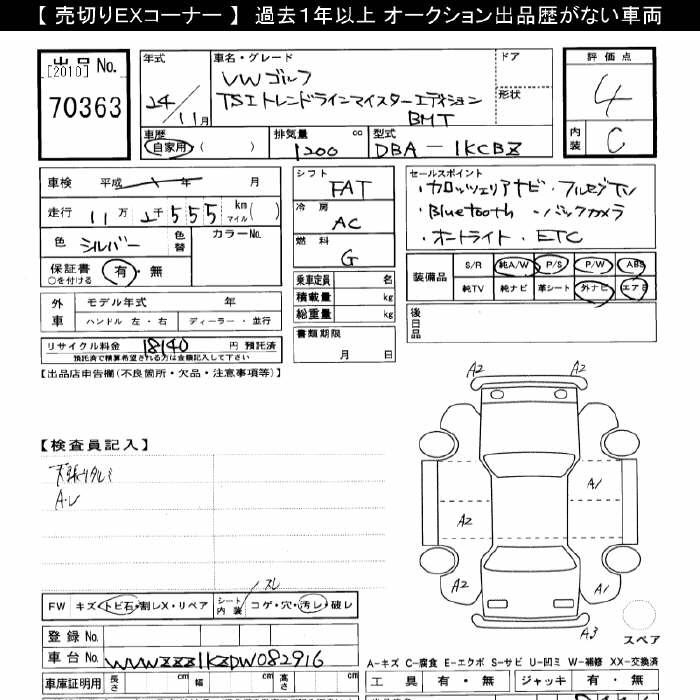 【 売切りEXコーナー 】 過去1年以上 オークション出品歴がない車両
出品 No.
[2010]
70363
年式
24/11月
車名・グレード
VW ゴルフ
TSIトレンドラインマイスターエディション
BMT
ドア
形状
評価点
4
内装
C
車歴
自家用 ( )
排気量 cc
1200
型式
DBA-1KCBZ
車検 平成 年 月
走行 11万2千555 km マイル ( )
色 シルバー 色替 カラーNo.
保証書 有・無
○を付ける
外車 モデル年式 年
ハンドル 左・右 ディーラー・並行
リサイクル料金 18140 円 預託済
預託済で積算希望される方は金額記入して下さい
【出品店申告欄(不良箇所・欠品・注意事項等)】
シフト
FAT
冷房
AC
燃料
G
乗車定員 名
積載量 kg
総重量 kg
書類期限
月 日
セールスポイント
・カロッツェリアナビ・フルセグTV
・Bluetooth ・バックカメラ
・オートライト・ETC
装備品
S/R 純A/W P/S P/W ABS
純TV 純ナビ 革シート 外ナビ エアB
後日品
【検査員記入】
天張りタルミ
A・U
A2 A2
A1
A2
A2 A1
A3
スペア
スレ
FW キズ・トビ石・割レX・リペア シート内装 コゲ・穴・汚レ・破レ
登録 No.
車台 No. WVWZZZ1KZDW082916
車庫証明用 長さ cm 幅 cm 高さ cm
A-キズ C-腐食 E-エクボ S-サビ U-凹ミ W-補修 XX-交換済
工具 有・無 ジャッキ 有・無